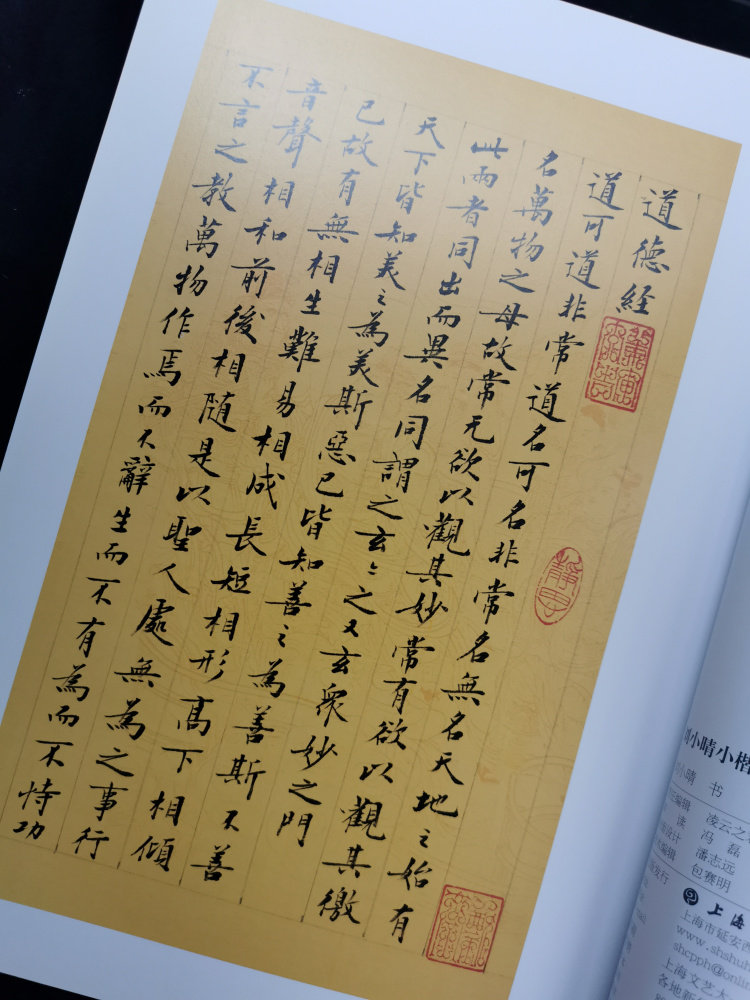 道德經
道可道非常道名可名非常名無名天地之始有
名萬物之母故常无欲以觀其妙常有欲以觀其徼
此兩者同出而異名同謂之玄々之又玄衆妙之門
天下皆知美之為美斯惡已皆知善之為善斯不善
已故有無相生難易相成長短相形高下相傾
音聲相和前後相随是以聖人處無為之事行
不言之教萬物作焉而不辭生而不有為而不恃功
小晴小楷
小晴 书
编辑 凌云之
读 冯磊
设计 潘志远
编辑 包赛明
发行
上海
上海市延安西
www.shshuh
shcpph@onlin
上海文艺大
各地新